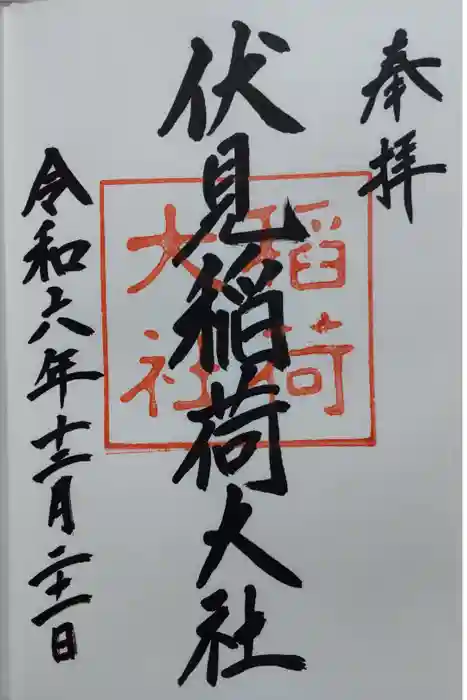 奉拝
伏見稲荷大社
稲荷
大社
令和六年十二月二十一日